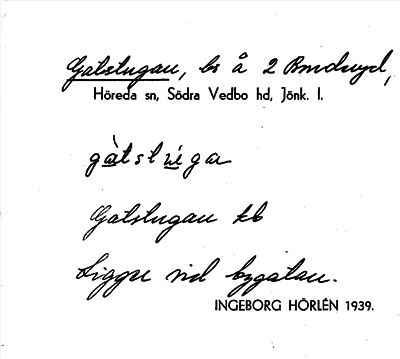 Gatstugan, bs å 2 Bredsryd,
Höreda sn, Södra Vedbo hd, Jönk. l.
gàtstúgan
Gatstugan kb
Ligger vid bygatan.
INGEBORG HÖRLÉN 1939.